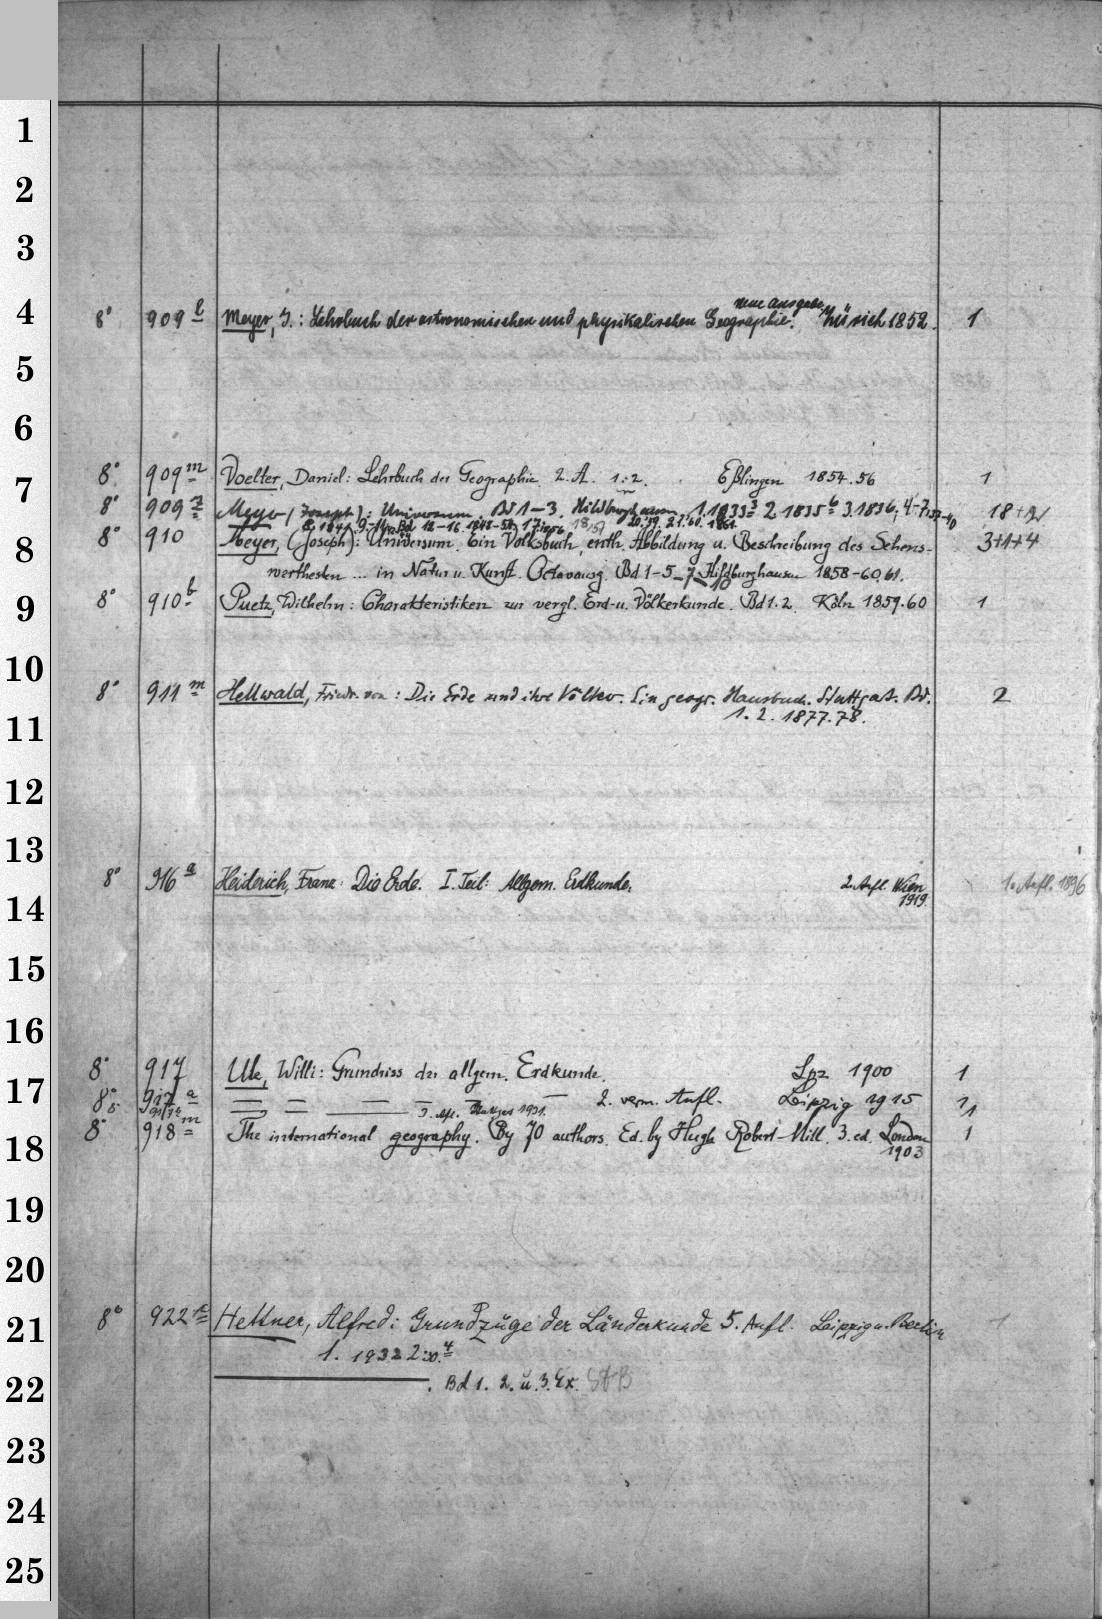 1
2
3
neue Ausgabe
4 8° 909 l Meyer, J.: Lehrbuch der astronomischen und physikalischen Geographie. Zürich 1852. 1
5
6
7 8° 909 m Voelter, Daniel: Lehrbuch der Geographie. 2. A. 1:2. Eßlingen 1854.56 1
8° 909 Meyer (Joseph): Universum. Bd 1–3. Hildburghausen 1.1833 2 1835 3.1836; 4–7 1837–40 18+
Bd 12–16 1848–
8 8° 910 Meyer, (Joseph): Universum. Ein Volksbuch, enth. Abbildung u. Beschreibung des Sehens- 3+1+4
werthesten ... in Natur u. Kunst. Octavausg. Bd 1–5–7 Hildburghausen 1858–60.61.
9 8° 910 b Puetz, Wilhelm: Charakteristiken zur vergl. Erd- u. Völkerkunde. Bd 1.2. Köln 1859.60 1
10 8° 911 m Hellwald, Friedr. von: Die Erde und ihre Völker. Ein geogr. Hausbuch. Stuttgart. Bd. 2
1. 2. 1877.78.
11
12
13
8° 916 a Heiderich, Franz: Die Erde. I. Teil: Allgem. Erdkunde. 2. Aufl. Wien 1. Aufl. 1896
1919.
14
15
16
8° 917 Ule, Willi: Grundriss der allgem. Erdkunde. Lpz 1900 1
17 8° 917 a — — — — — — 2. verm. Aufl. Leipzig 1915 1
3. Afl. Stuttgart 1931. 1
18 8° 918 m The international geography. By 70 authors. Ed. by Hugh Robert Mill. 3. ed. London 1
1903
19
20
21 8° 922 Hettner, Alfred: Grundzüge der Länderkunde 5. Aufl. Leipzig u. Berlin 1
1. 1932 2:
22 . Bd 1. 2. u. 3. Ex.
23
24
25